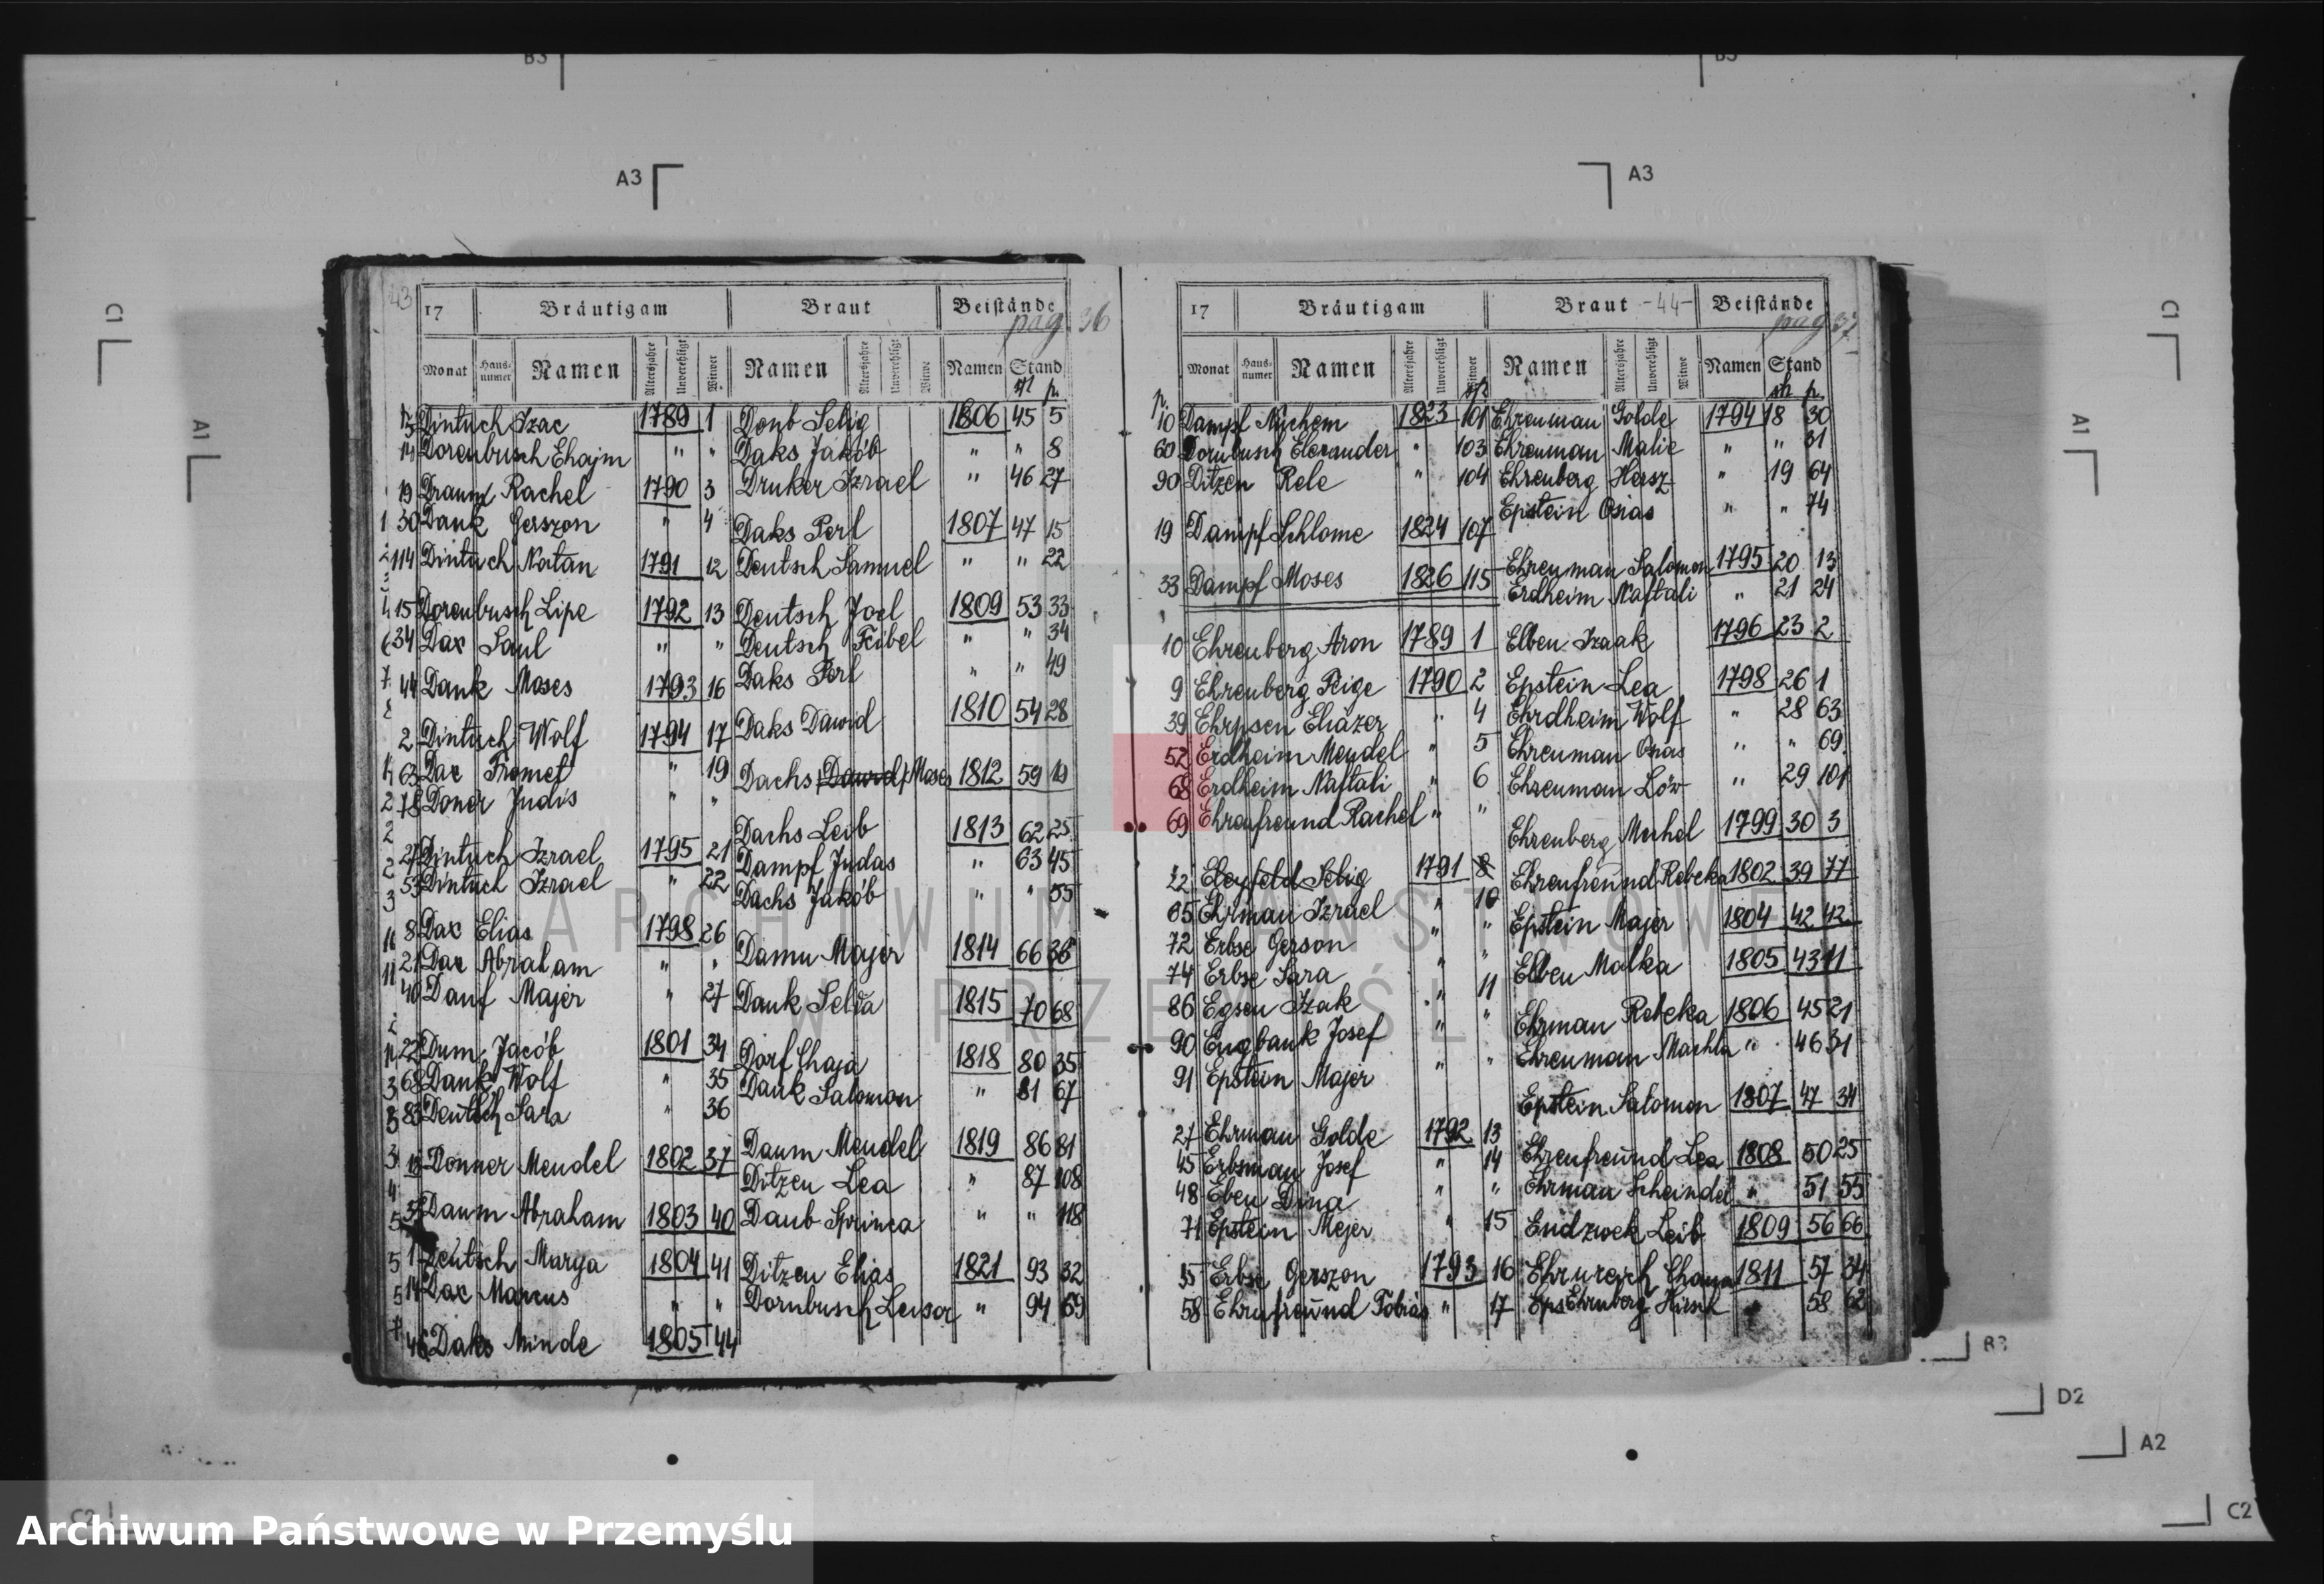 B3
B3
A3
A3
C1
C1
A1
A1
43
17 Bräutigam Braut Beistände
pag. 36
Monat Haus-numer Namen Altersjahre Unverehligt Witwer Namen Altersjahre Unverehligt Witwe Namen Stand
p.
Dintuch Izac 1789 1
14 Dorenbusch Ehajm " "
19 Draum Rachel 1790 3
30 Dank Gerszon " 4
114 Dintuch Natan 1791 12
15 Dorenbusch Lipe 1792 13
34 Dax Saul " "
44 Dank Moses 1793 16
2 Dintuch Wolf 1794 17
63 Dax Fromet " 19
78 Doner Judis " "
27 Dintuch Izrael 1795 21
53 Dintuch Izrael " 22
8 Dax Elias 1798 26
21 Dax Abraham " "
40 Danf Majer " 27
22 Dum Jacób 1801 34
68 Dank Wolf " 35
83 Deutsch Sara " 36
Donner Mendel 1802 37
Daum Abraham 1803 40
1 Deutsch Marya 1804 41
14 Dax Marcus " "
46 Daks Minde 1805 44
Donb Selig 1806 45 5
Daks Jakób " " 8
Druker Izrael " 46 27
Daks Perl 1807 47 15
Deutsch Samuel " " 22
Deutsch Joel 1809 53 33
Deutsch Feibel " " 34
Daks Perl " " 49
Daks Dawid 1810 54 28
Dachs Dawid Moses 1812 59
Dachs Leib 1813 62 25
Dampf Judas " 63 45
Dachs Jakób " " 55
Damu Majer 1814 66 36
Dank Selda 1815 70 68
Dorf Chaja 1818 80 35
Dank Salomon " 81 67
Daum Mendel 1819 86 81
Ditzen Lea " 87 108
Daub Sprinca " " 118
Ditzen Elias 1821 93 32
Dornbusch Leisor " 94 69
17 Bräutigam Braut -44- Beistände
pag 37
Monat Haus-numer Namen Altersjahre Unverehligt Witwer Namen Altersjahre Unverehligt Witwe Namen Stand
p.
10 Dampf Nuchem 1823 101
60 Dornbusch Elexander " 103
90 Ditzen Rele " 104
19 Dampf Schlome 1824 107
33 Dampf Moses 1826 115
10 Ehrenberg Aron 1789 1
9 Ehrenberg Peige 1790 2
39 Ehrpsen Eliazer " 4
52 Erdheim Mendel " 5
68 Erdheim Naftali " 6
69 Ehrenfreund Rachel " "
22 Eleyfeld Selig 1791 8
65 Ehrman Izrael " 10
72 Erbse Gerson " "
74 Erbse Sara " "
86 Egsen Izak " 11
90 Engbank Josef " "
91 Epstein Majer " "
27 Ehrman Golde 1792 13
45 Erbsman Josef " 14
48 Eben Dina " "
71 Epstein Mejer " 15
35 Erbse Gerszon 1793 16
58 Ehrenfreund Tobias " 17
Ehrenman Golde 1794 18 30
Ehrenman Malie " " 31
Ehrenberg Hersz " 19 64
Epstein Osias " " 74
Ehrenman Salomon 1795 20 13
Erdheim Naftali " 21 24
Elben Izaak 1796 23 2
Epstein Lea 1798 26 1
Ehrdheim Wolf " 28 63
Ehrenman Osias " " 69
Ehrenman Löw " 29 101
Ehrenberg Mechel 1799 30 3
Ehrenfreund Rebeka 1802 39 77
Epstein Majer 1804 42 42
Elben Malka 1805 43 11
Ehrman Rebeka 1806 45 21
Ehrenman Machla " 46 31
Epstein Salomon 1807 47 34
Ehrenfreund Lea 1808 50 25
Ehrman Scheindel " 51 55
Endzwek Leib 1809 56 66
Chana 1811 57 34
Ehrenberg Hirsch 58
ARCHIWUM PAŃSTWOWE
W PRZEMYŚLU
B3
D2
A2
C2
C2
Archiwum Państwowe w Przemyślu